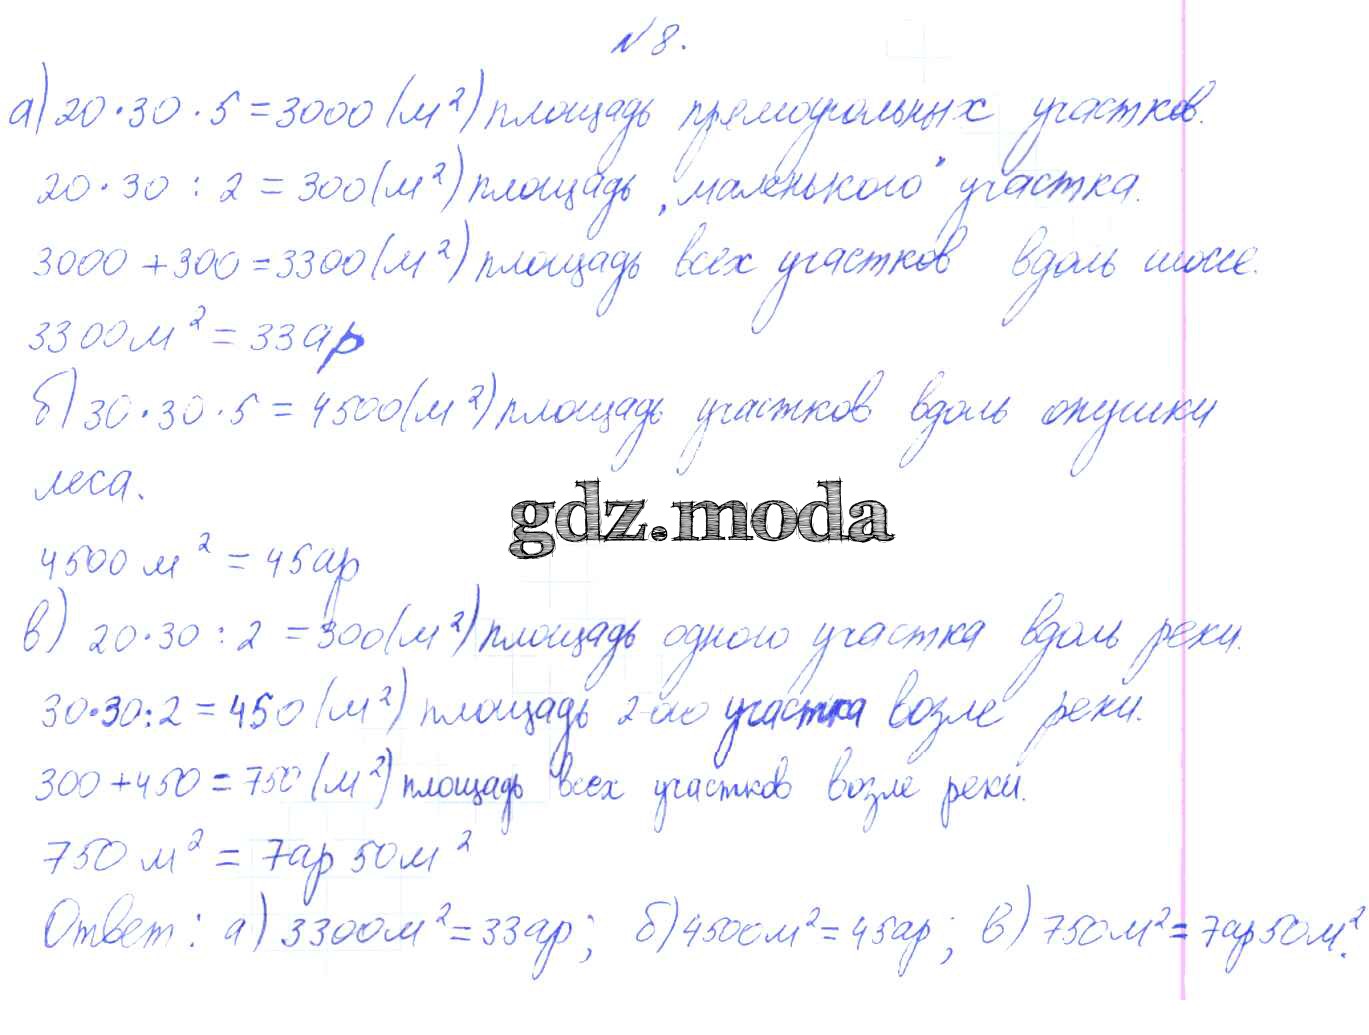 №8.
а) 20·30·5=3000(м²) площадь прямоугольных участков.
20·30:2=300(м²) площадь „маленького" участка.
3000+300=3300(м²) площадь всех участков вдоль шоссе.
3300м²=33ар
б) 30·30·5=4500(м²) площадь участков вдоль опушки
леса.
gdz.moda
4500м²=45ар
в) 20·30:2=300(м²) площадь одного участка вдоль реки.
30·30:2=450(м²) площадь 2-ого участка возле реки.
300+450=750(м²) площадь всех участков возле реки.
750м²=7ар 50м²
Ответ: а) 3300м²=33ар; б) 4500м²=45ар; в) 750м²=7ар 50м².